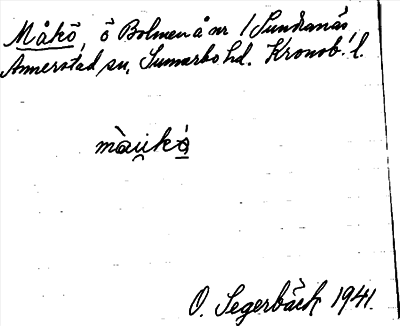 Måkö, ö Bolmen å nr 1 Sundranäs,
Annerstad sn, Sunnerbo hd. Kronob. l.
màu̯kó̠
O. Segerbäck 1941.